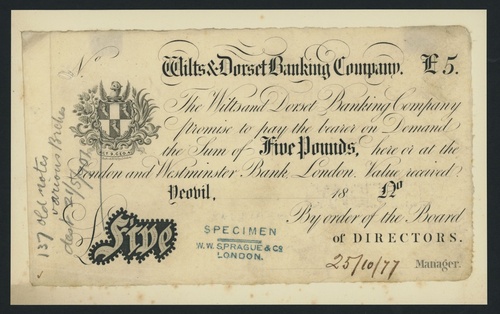 No
Wilts & Dorset Banking Company. £5.
The Wilts and Dorset Banking Company
promise to pay the bearer on Demand
the Sum of Five Pounds, here or at the
London and Westminster Bank, London. Value received
Yeovil, 18 No
By order of the Board
of DIRECTORS.
Five
SPECIMEN
W. W. SPRAGUE & Co
LONDON.
25/10/77 Manager.
137 old notes
various